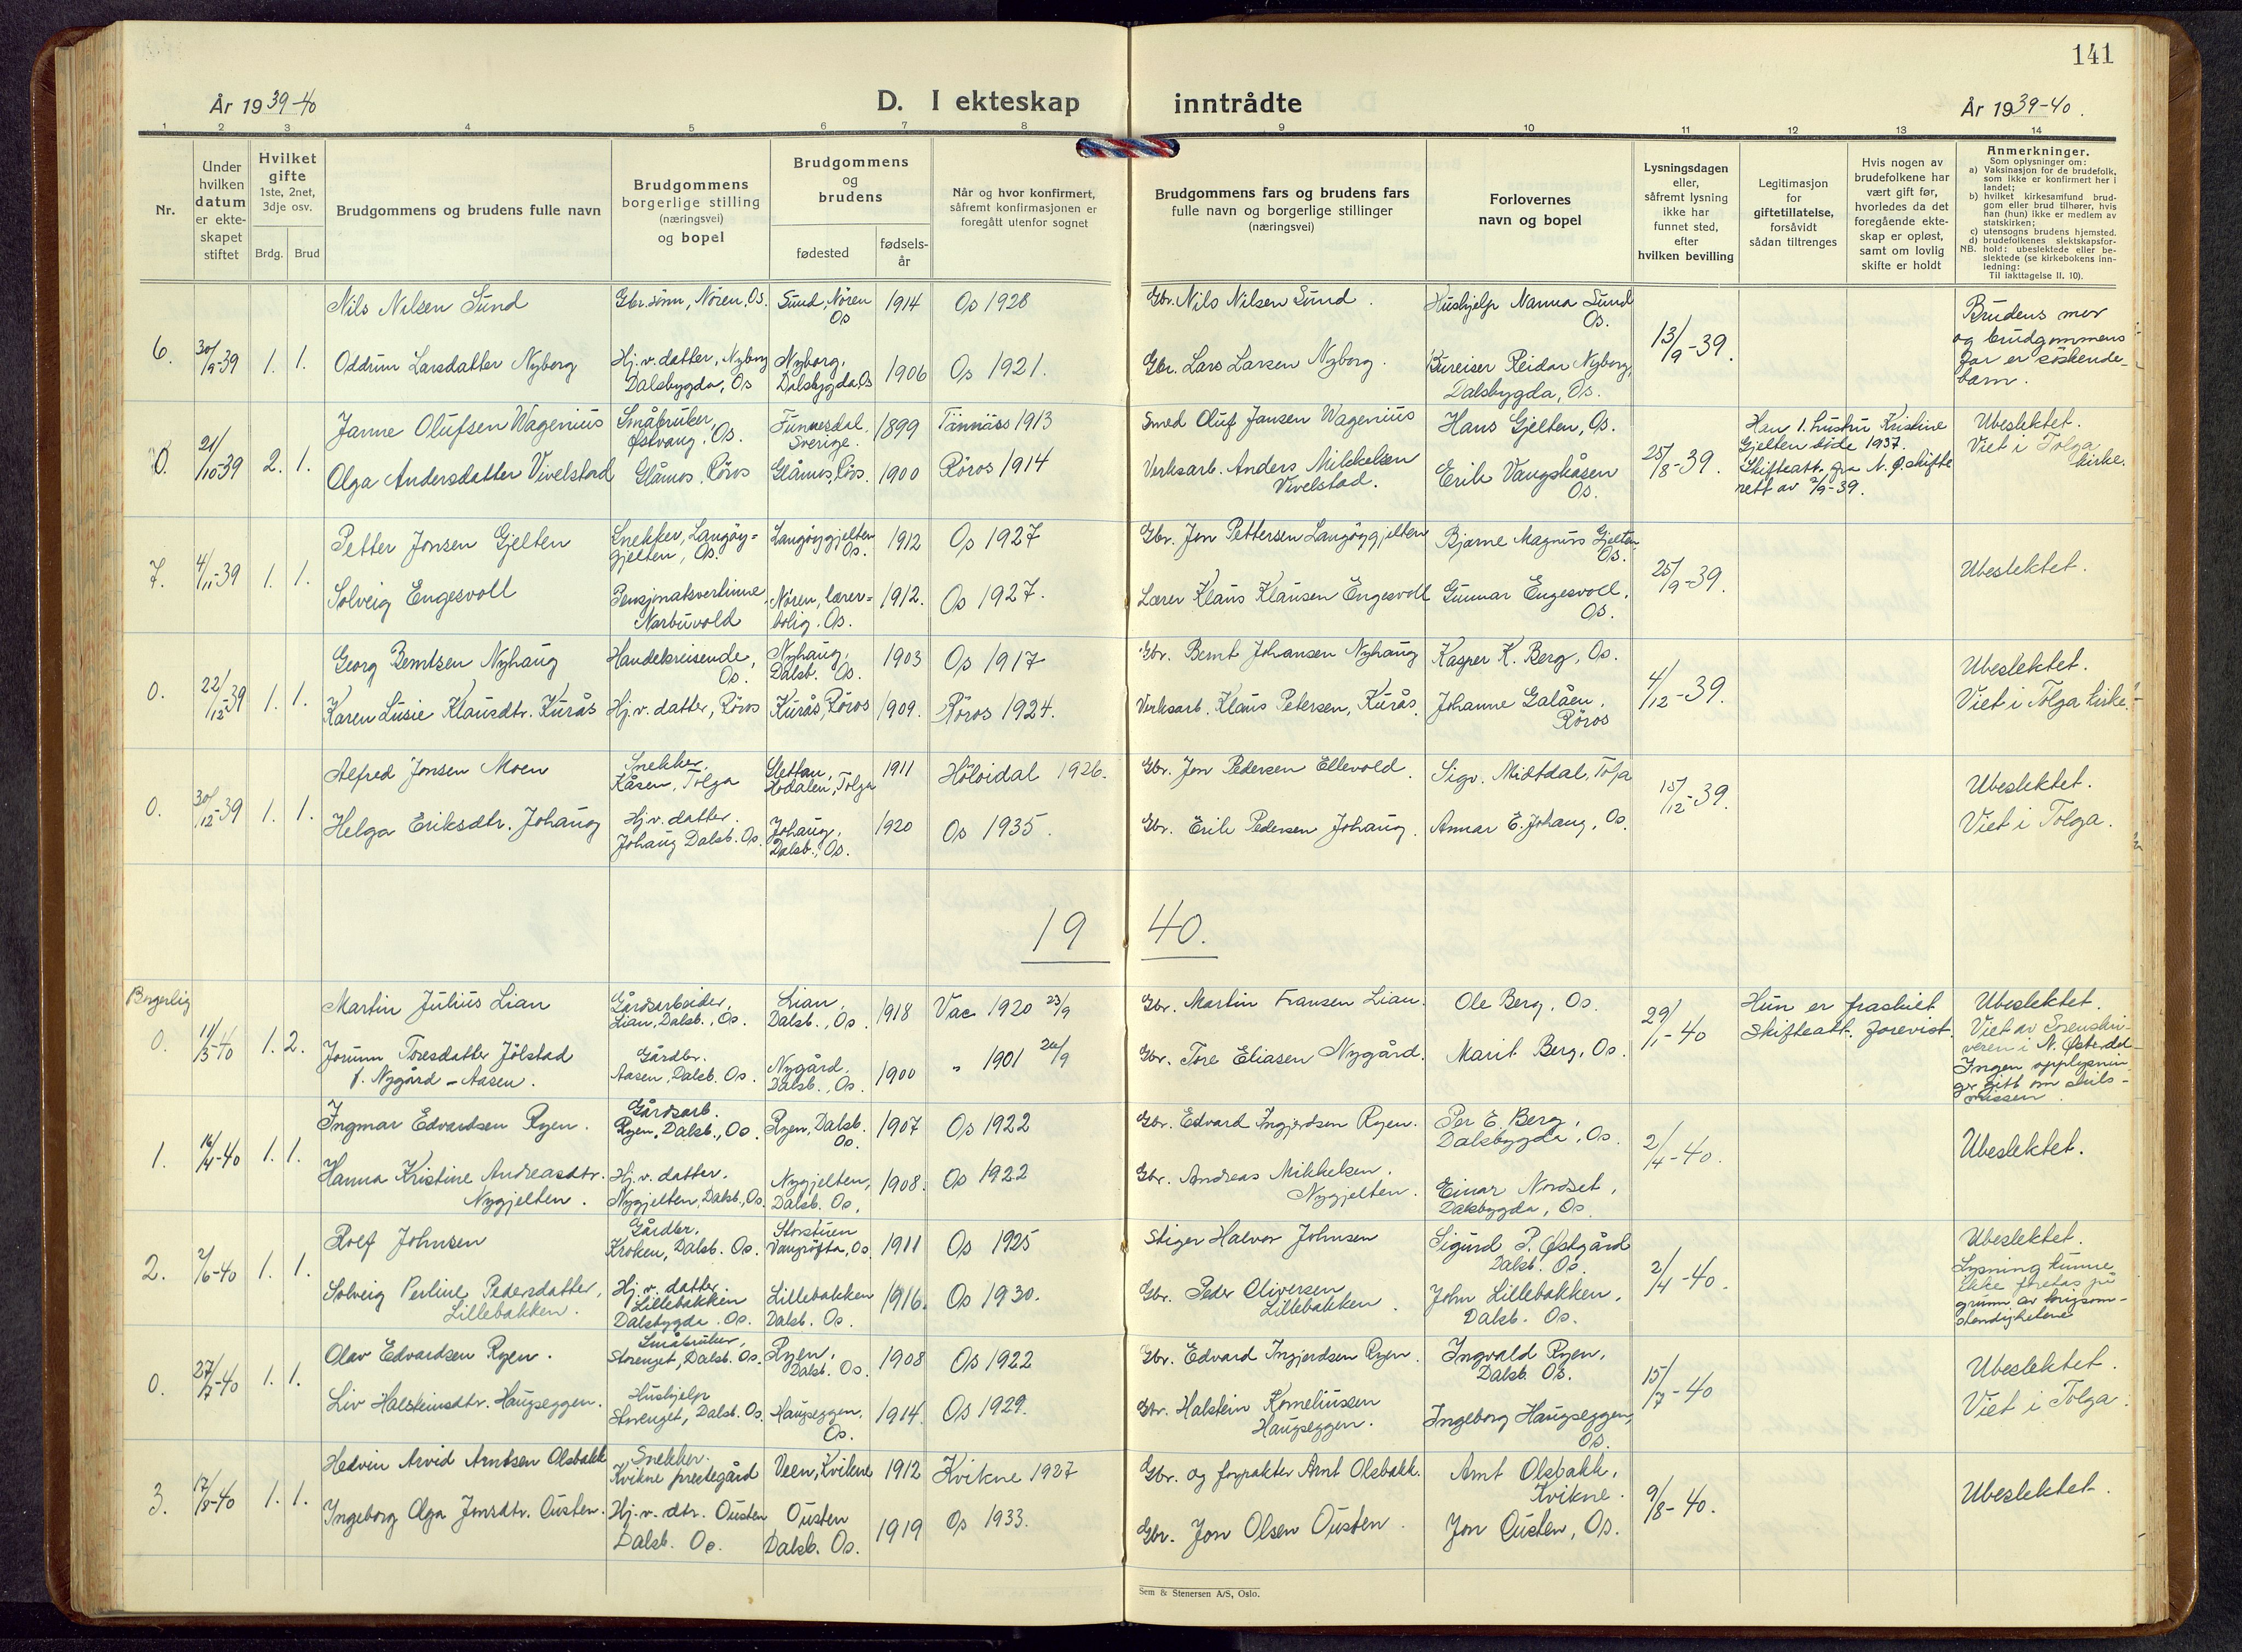 141
År 1939-40
D. I ekteskap inntrådte
År 1939-40.
1 2 3 4 5 6 7 8 9 10 11 12 13 14
Nr.
Under
hvilken
datum
er ekte-
skapet
stiftet
Hvilket
gifte
1ste, 2net,
3dje osv.
Brdg. Brud
Brudgommens og brudens fulle navn
Brudgommens
borgerlige stilling
(næringsvei)
og bopel
Brudgommens
og
brudens
fødested
fødsels-
år
Når og hvor konfirmert,
såfremt konfirmasjonen er
foregått utenfor sognet
Brudgommens fars og brudens fars
fulle navn og borgerlige stillinger
(næringsvei)
Forlovernes
navn og bopel
Lysningsdagen
eller,
såfremt lysning
ikke har
funnet sted,
efter
hvilken bevilling
Legitimasjon
for
giftetillatelse,
forsåvidt
sådan tiltrenges
Hvis nogen av
brudefolkene har
vært gift før,
hvorledes da det
foregående ekte-
skap er opløst,
samt om lovlig
skifte er holdt
Anmerkninger.
Som oplysninger om:
a) Vaksinasjon for de brudefolk,
som ikke er konfirmert her i
landet;
b) hvilket kirkesamfund brud-
gom eller brud tilhører, hvis
han (hun) ikke er medlem av
statskirken;
c) utensogns brudens hjemsted.
d) brudefolkenes slektskapsfor-
NB. hold: ubeslektede eller be-
slektede (se kirkebokens inn-
ledning:
Til iakttagelse II. 10).
6. 30/9-39 1. 1.
Nils Nilsen Sund
Gbr.sønn, Nören, Os.
Sund, Nören
Os
1914
Os 1928
Gbr. Nils Nilsen Sund.
Hushjelp Nanna Sund
Os.
13/9-39.
Brudens mor
og brudgommens
far er söskende-
barn.
Oddrun Larsdatter Nyborg
Hj. v. datter, Nyborg
Dalsbygda, Os
Nyborg,
Dalsbygda, Os
1906
Os 1921.
Gbr. Lars Larsen Nyborg.
Bureiser Reidar Nyborg,
Dalsbygda, Os.
0. 21/10-39 2. 1.
Janne Olufsen Wagenius
Småbruker,
Østvang, Os.
Funnesdal.
Sverige.
1899
Tännäss 1913
Smed Oluf Jansen Wagenius
Hans Gjelten, Os.
25/8-39.
Han 1. hustru Kristine
Gjelten døde 1937.
Skifteatt. fra N. Ø. skifte
rett av 2/9-39.
Ubeslektet.
Viet i Tolga
kirke.
Olga Andersdatter Vivelstad
Glåmos, Röros
Glåmos, Rös.
1900
Röros 1914
Verksarb. Anders Mikkelsen
Vivelstad.
Erik Vangskåsen
Os.
7. 4/11-39 1. 1.
Petter Jonsen Gjelten
Snekker, Langöy-
gjelten, Os.
Langöygjelten
Os.
1912
Os 1927
Gbr. Jon Pettersen Langöygjelten
Bjarne Magnus Gjelten
Os.
25/9-39.
Ubeslektet.
Solveig Engesvoll
Pensjonatsvertinne
Narbuvold
Nören, lærer-
bolig. Os.
1912.
Os 1927.
Lærer Klaus Klausen Engesvoll
Gunnar Engesvoll,
Os.
0. 22/12-39 1. 1.
Georg Berntsen Nyhaug
Handelsreisende,
Os.
Nyhaug,
Dalsb. Os.
1903
Os 1917
Gbr. Bernt Johansen Nyhaug
Kasper K. Berg, Os.
4/12-39.
Ubeslektet.
Viet i Tolga kirke.
Karen Lusie Klausdtr. Kurås
Hj. v. datter, Röros
Kurås, Röros
1909.
Röros 1924.
Verksarb. Klaus Petersen, Kurås.
Johanne Galåen,
Röros
0. 30/12-39 1. 1.
Alfred Jonsen Moen
Snekker.
Kåsen, Tolga
Slettan,
Hodalen, Tolga
1911
Höloidal 1926.
Gbr. Jon Pedersen Ellevold.
Sigv. Midtdal, Tolga
15/12-39.
Ubeslektet.
Viet i Tolga.
Helga Eriksdtr. Johaug
Hj. v. datter.
Johaug Dalsb. Os.
Johaug,
Dalsb., Os.
1920
Os 1935.
Gbr. Erik Pedersen Johaug.
Annar E. Johaug, Os.
19 40.
Borgerlig
0. 11/3-40 1. 2.
Martin Julius Lian
Gårdsarbeider,
Lian, Dalsb., Os.
Lian,
Dalsb., Os
1918
Vac 1920 23/9
Gbr. Martin Fransen Lian.
Ole Berg, Os.
29/1-40
Hun er fraskilt
Skifteatt. forevist.
Ubeslektet.
Viet av Sorenskri-
veren i N. Østerdal
Ingen opplysnin-
ger gitt om skils-
missen.
Jorunn Toresdatter Jölstad
f. Nygård - Aasen.
Gårdbr.
Aasen, Dalsb. Os.
Nygård,
Dalsb., Os
1900
" 1901 20/9
Gbr. Tore Eliasen Nygård.
Marit Berg, Os.
1. 16/4-40 1. 1.
Ingmar Edvardsen Ryen.
Gårdsarb.
Ryen, Dalsb., Os.
Ryen, Dalsb.
Os.
1907
Os 1922
Gbr. Edvard Ingjerdsen Ryen.
Per E. Berg,
Dalsbygda, Os.
2/4-40.
Ubeslektet.
Hanna Kristine Andreasdtr.
Nygjelten.
Hj. v. datter.
Nygjelten, Dalsb, Os.
Nygjelten,
Dalsb. Os.
1908.
Os 1922
Gbr. Andreas Mikkelsen.
Nygjelten.
Einar Nordset,
Dalsbygda, Os.
2. 2/6-40 1. 1.
Rolf Johnsen
Gårdbr.
Kroken, Dalsb. Os.
Storstuen
Vangröfta, Os
1911
Os 1925
Stiger Halvor Johnsen
Sigurd P. Østgård
Dalsb. Os.
2/4-40.
Ubeslektet.
Lysning kunne
ikke foretas på
grunn av krigsom-
stendighetene
Solveig Perline Pedersdatter,
Lillebakken.
Hj. v. datter,
Lillebakken
Dalsbygda. Os.
Lillebakken
Dalsb. Os.
1916.
Os 1930.
Gbr. Peder Oliversen
Lillebakken.
John Lillebakken,
Dalsb. Os.
0. 27/7-40 1. 1.
Olav Edvardsen Ryen.
Småbruker,
Storenget, Dalsb. Os.
Ryen,
Dalsb. Os.
1908
Os 1922
Gbr. Edvard Ingjerdsen Ryen.
Ingvald Ryen,
Dalsb. Os.
15/7-40
Ubeslektet.
Viet i Tolga.
Liv Halsteinsdtr. Haugseggen.
Hushjelp
Storenget, Dalsb. Os.
Haugseggen,
Os.
1914.
Os 1929.
Gbr. Halstein Korneliussen
Haugseggen.
Ingeborg Haugseggen,
Os.
3. 17/8-40 1. 1.
Hedvin Arvid Arntsen Olsbakk
Snekker.
Kvikne prestegård
Veen, Kvikne
1912
Kvikne 1927
Gbr. og forpakter Arnt Olsbakk.
Arnt Olsbakk,
Kvikne.
9/8-40.
Ubeslektet.
Ingeborg Olga Jonsdtr. Ousten.
Hj. v. dtr. Ousten
Dalsb. Os.
Ousten
Dalsb. Os.
1919
Os 1933.
Gbr. Jon Olsen Ousten.
Jon Ousten, Os.
Sem & Stenersen A/S, Oslo.